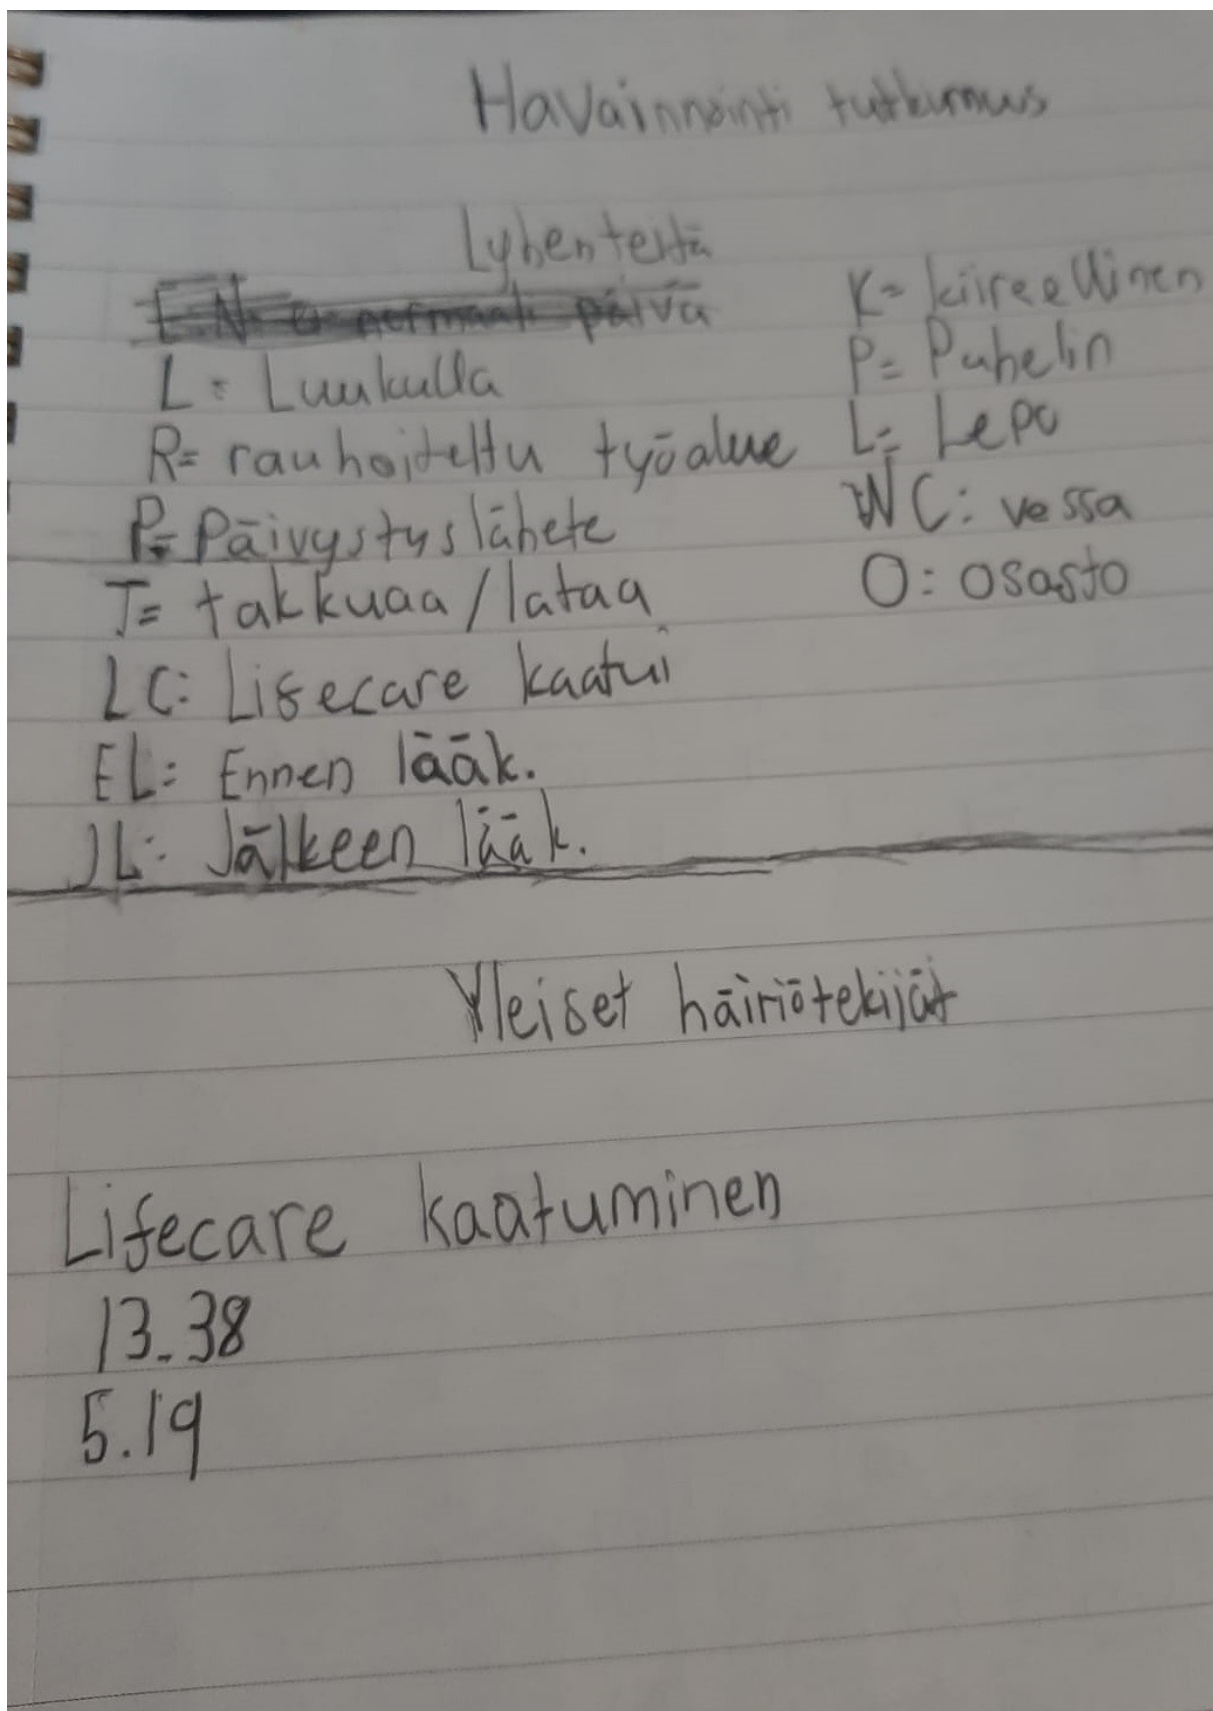 Havainnointi tutkumus
Lyhenteitä
normaali päivä
L = Luukulla
R= rauhoitettu työalue
P= Päivystyslähete
T= takkuaa/lataa
LC: Lifecare kaatui
EL= Ennen lääk.
JL: Jälkeen lääk.
K= kiireellinen
P= Puhelin
L= Lepo
WC: vessa
O: osasto
Yleiset häiriötekijät
Lifecare kaatuminen
13.38
5.19